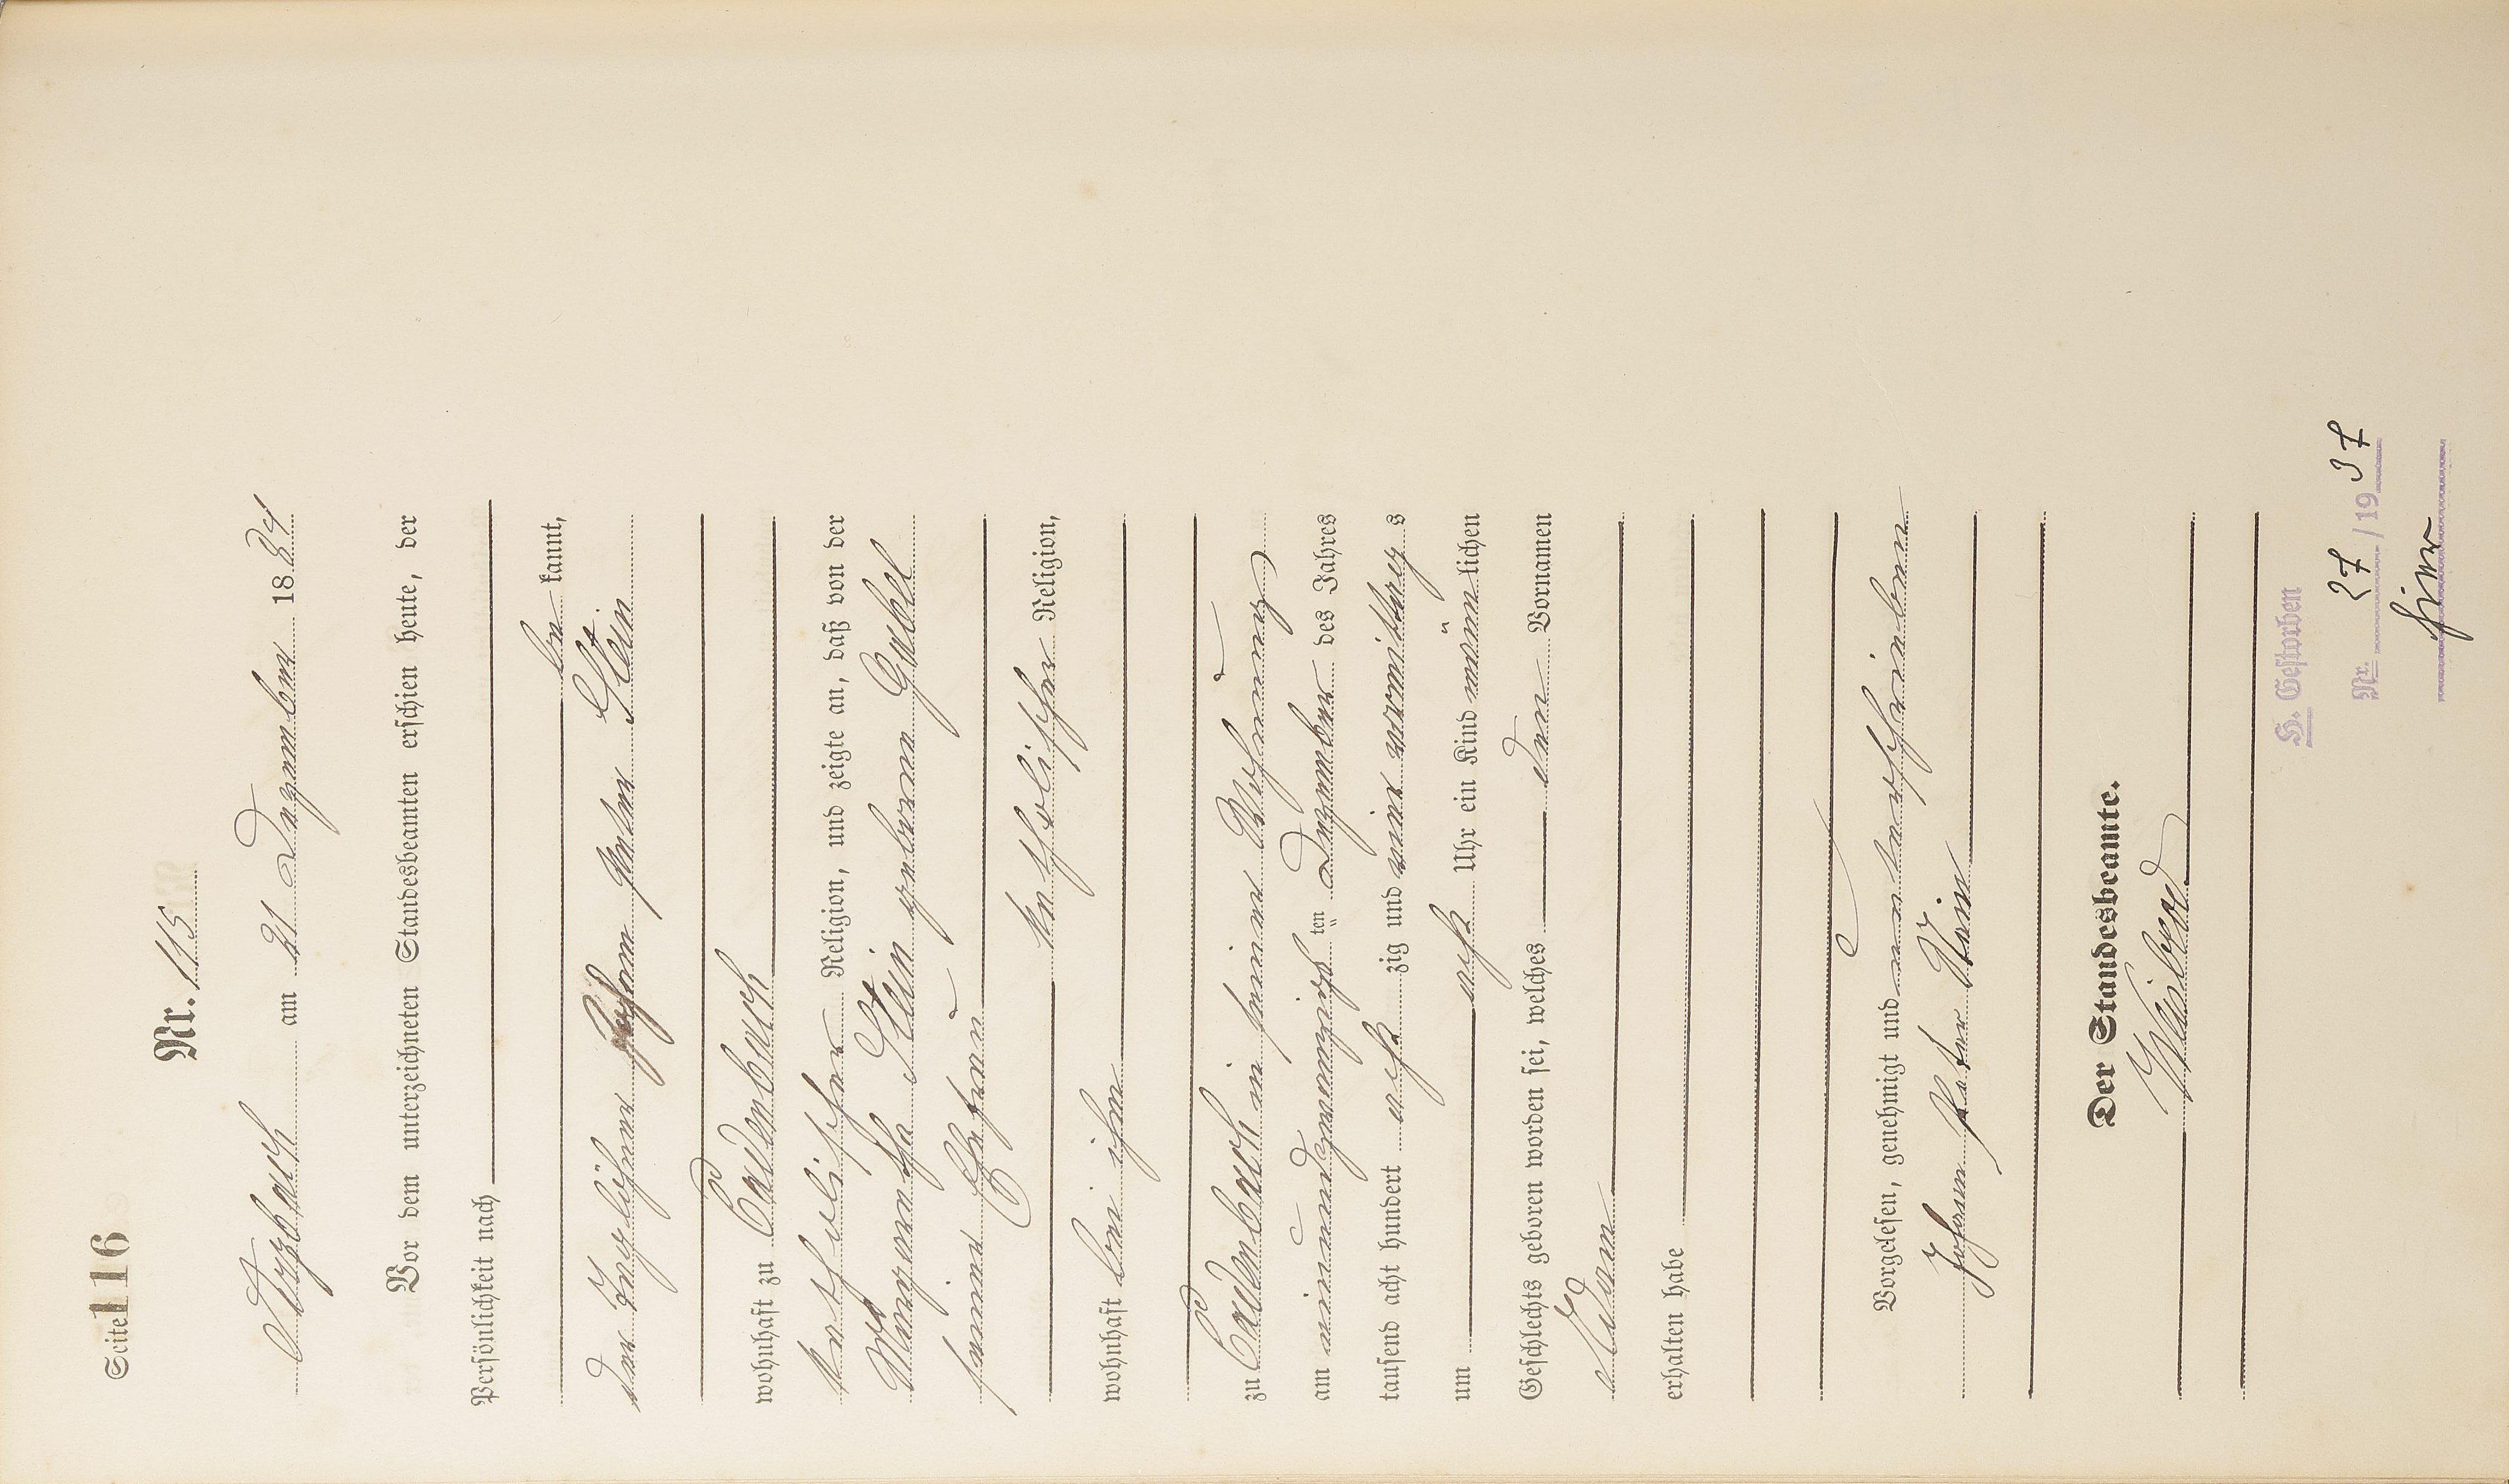 Seite 116
Nr. 115
Arzbach am 21 Dezember 1884
Vor dem unterzeichneten Standesbeamten erschien heute, der
Persönlichkeit nach
be kannt,
der Taglöhner Johann Peter Stein
wohnhaft zu Cadenbach
katholischer Religion, und zeigte an, daß von der
Margaretha Stein geborene Gabel
seiner Ehefrau
katholischer Religion,
wohnhaft bei ihm
zu Cadenbach in seiner Wohnung
am einundzwanzigsten Dezember des Jahres
tausend acht hundert acht zig und vier vormittags
um acht Uhr ein Kind männlichen
Geschlechts geboren worden sei, welches den Vornamen
Adam
erhalten habe
Vorgelesen, genehmigt und unterschrieben
Johann Peter Stein
Der Standesbeamte.
H. Gestorben
Nr. 27 / 19 37
hier